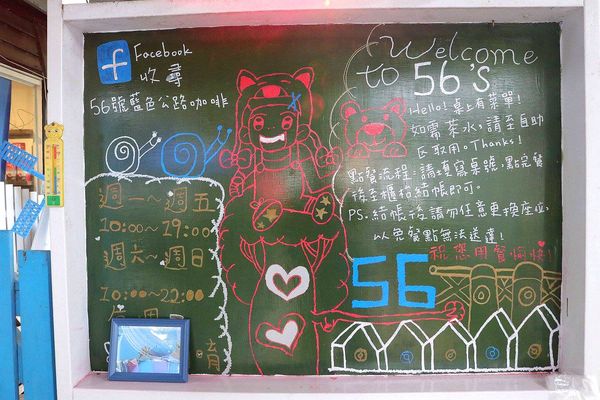 f Facebook
收尋
56號藍色公路咖啡
週一~週五
10:00~19:00
週六~週日
10:00~22:00
Welcome
to 56's
Hello! 桌上有菜單!
如需茶水,請至自助
區取用。Thanks!
點餐流程:請填寫桌號,點完餐
後至櫃檯結帳即可。
PS.結帳後請勿任意更換座位,
以免餐點無法送達!
祝您用餐愉快!
56